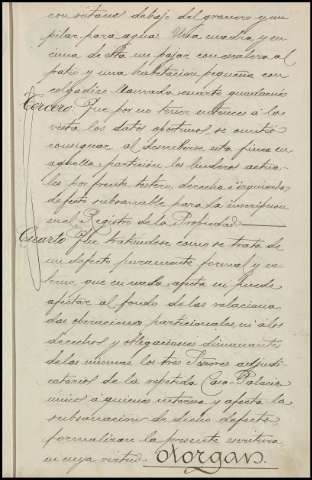 con sótano debajo del granero y un
pilar para agua. Una cuadra, y en
cima de ésta un pajar con escalera al
patio y una habitación pequeña con
colgadizo llamada cuarto guadarnés
Tercero. Que por no tener entonces á la
vista los datos oportunos se omitió
consignar al describirse esta finca en
aquella partición los linderos actua-
les por frente, testero, derecha é izquierda
defecto subsanable para la inscripción
en el Registro de la Propiedad.
Cuarto. Que tratándose como se trata de
un defecto puramente formal y ex-
terno, que en nada afecta ni puede
afectar al fondo de las relaciona
das operaciones particionales, ni á los
derechos y obligaciones dimanantes
de las mismas los tres Señores adjudi-
catarios de la repetida Casa-Palacio
únicos á quienes interesa y afecta la
subsanación de dicho defecto
formalizan la presente escritura
en cuya virtud Otorgan.